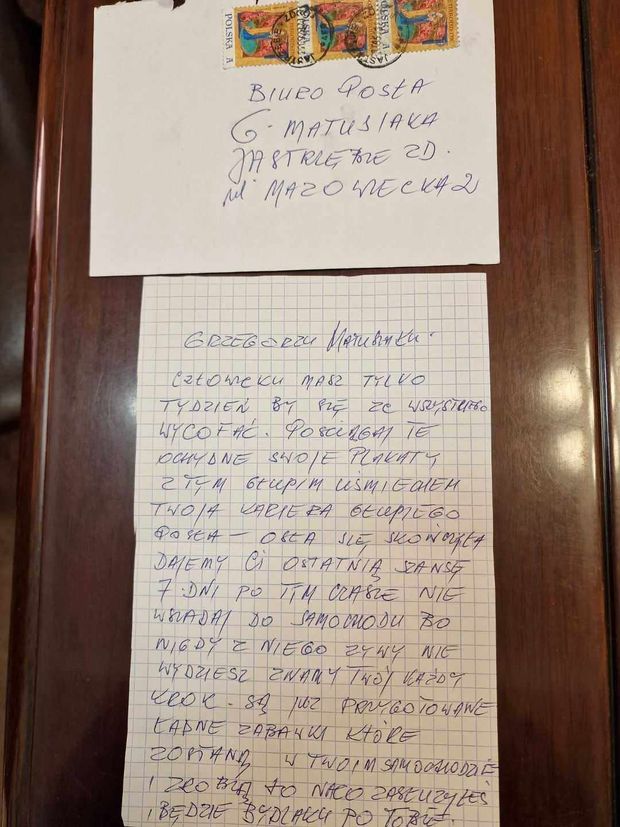 POLSKA A
POLSKA A
BIURO POSŁA
G. MATUSIAKA
JASTRZĘBIE ZD.
ul MAZOWIECKA 2
GRZEGORZU MATUSIAKU.
CZŁOWIEKU MASZ TYLKO
TYDZIEŃ BY SIĘ ZE WSZYSTKIEGO
WYCOFAĆ. POŚCIĄGAJ TE
OCHYDNE SWOJE PLAKATY
Z TYM GŁUPIM UŚMIECHEM
TWOJA KARIERA GŁUPIEGO
POSŁA – OSŁA SIĘ SKOŃCZYŁA
DAJEMY CI OSTATNIĄ SZANSĘ
7 DNI PO TYM CZASIE NIE
WSIADAJ DO SAMOCHODU BO
NIGDY Z NIEGO ŻYWY NIE
WYJDZIESZ ZNAMY TWÓJ KAŻDY
KROK. SĄ JUŻ PRZYGOTOWANE
ŁADNE ZABAWKI KTÓRE
ZOSTANĄ W TWOIM SAMOCHODZIE
I ZROBIĄ TO NA CO ZASŁUŻYŁEŚ
I BĘDZIE BYDLAKU PO TOBIE.